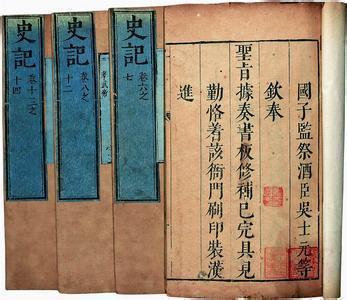 國子監祭酒臣吳士元等
欽奉
聖旨據奏書板修補已完具見
勤恪著該衙門刷印裝潢
進
史記
卷六之
七
史記
卷八之
十二
孝武帝
史記
卷十三之
十四